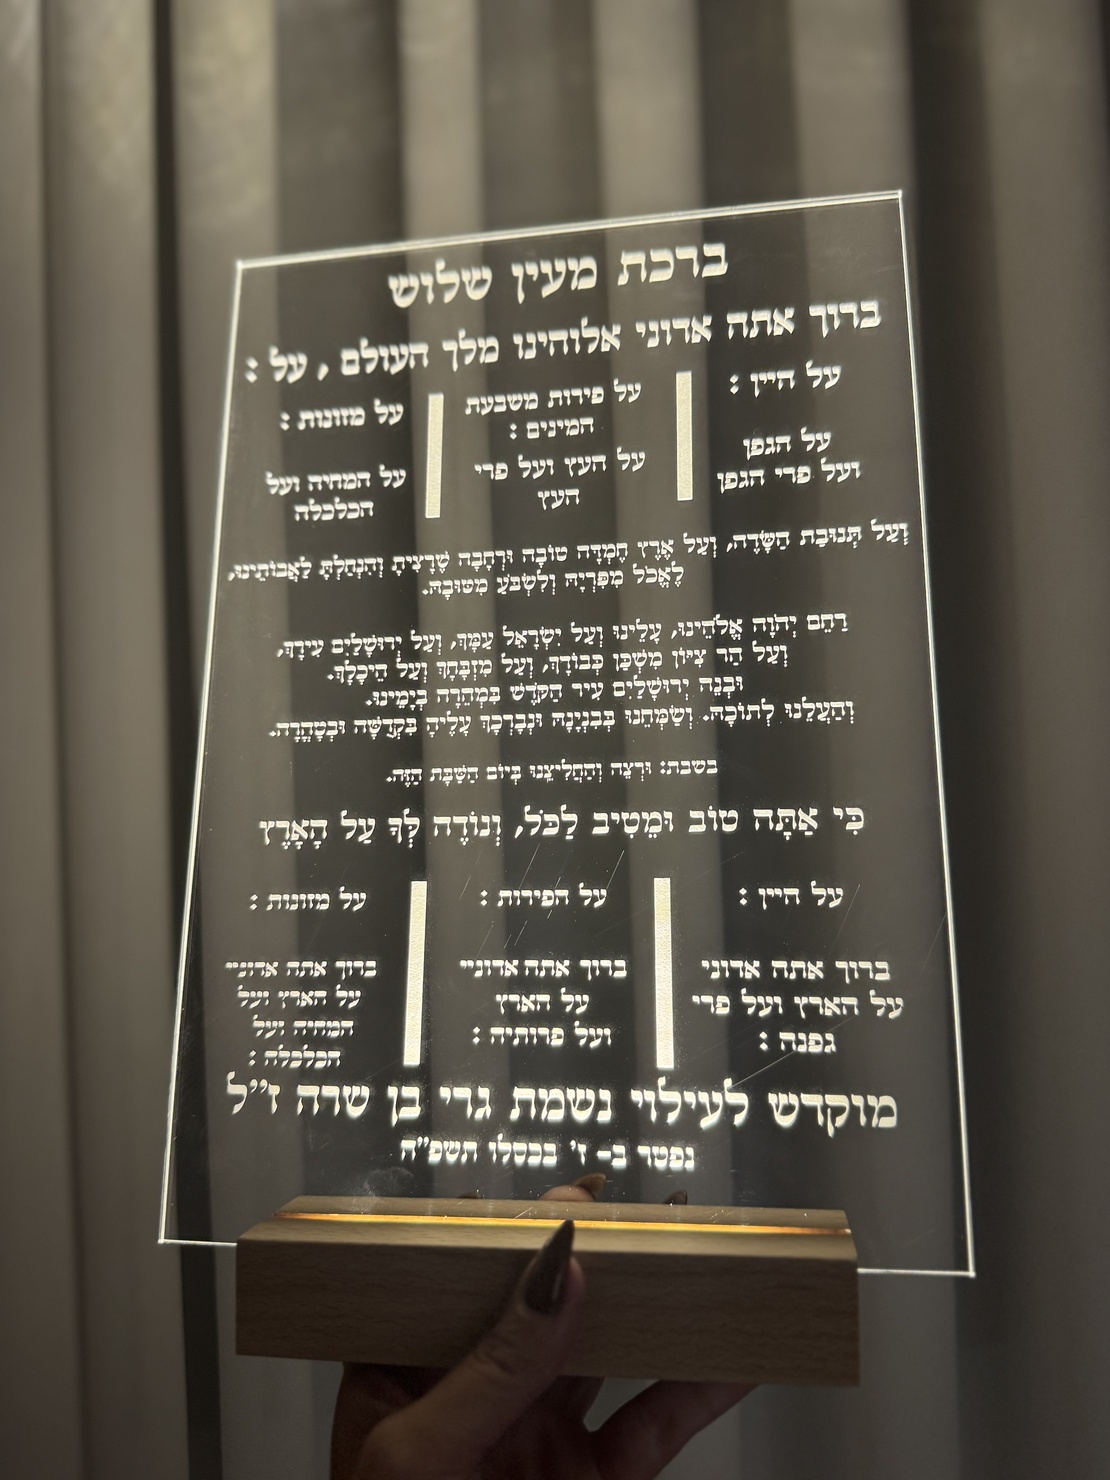 ברכת מעין שלוש
ברוך אתה אדוני אלוהינו מלך העולם , על :
על היין :
על הגפן
ועל פרי הגפן
על פירות משבעת
המינים :
על העץ ועל פרי
העץ
על מזונות :
על המחיה ועל
הכלכלה
וְעַל תְּנוּבַת הַשָּׂדֶה, וְעַל אֶרֶץ חֶמְדָּה טוֹבָה וּרְחָבָה שֶׁרָצִיתָ וְהִנְחַלְתָּ לַאֲבוֹתֵינוּ,
לֶאֱכֹל מִפִּרְיָהּ וְלִשְׂבֹּעַ מִטּוּבָהּ.
רַחֵם יְהֹוָה אֱלֹהֵינוּ, עָלֵינוּ וְעַל יִשְׂרָאֵל עַמָּךְ, וְעַל יְרוּשָׁלַיִם עִירָךְ,
וְעַל הַר צִיּוֹן מִשְׁכַּן כְּבוֹדָךְ, וְעַל מִזְבָּחָךְ וְעַל הֵיכָלָךְ.
וּבְנֵה יְרוּשָׁלַיִם עִיר הַקֹּדֶשׁ בִּמְהֵרָה בְיָמֵינוּ.
וְהַעֲלֵנוּ לְתוֹכָהּ. וְשַׂמְּחֵנוּ בְּבִנְיָנָהּ וּנְבָרְכָךְ עָלֶיהָ בִּקְדֻשָּׁה וּבְטָהֳרָה.
בשבת: וּרְצֵה וְהַחֲלִיצֵנוּ בְּיוֹם הַשַּׁבָּת הַזֶּה.
כִּי אַתָּה טוֹב וּמֵטִיב לַכֹּל, וְנוֹדֶה לְּךָ עַל הָאָרֶץ
על היין :
ברוך אתה אדוני
על הארץ ועל פרי
גפנה :
על הפירות :
ברוך אתה אדוניי
על הארץ
ועל פרותיה :
על מזונות :
ברוך אתה אדוניי
על הארץ ועל
המחיה ועל
הכלכלה :
מוקדש לעילוי נשמת גרי בן שרה ז״ל
נפטר ב- ז' בכסלו תשפ״ה